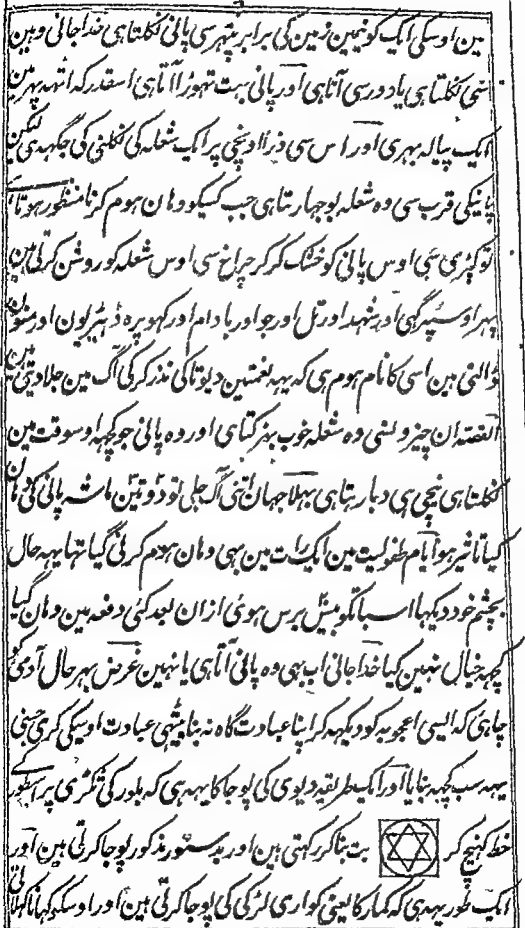 مین اوسکی ایک کونیمین زمین کی برابر پتھر سی پانی نکلتا ہی خدا جانی وہین
سی نکلتا ہی یا دور سی آتا ہی اور پانی بہت تہوڑا آتا ہی اسقدر کہ اٹہہ پہر مین
ایک پیالہ بہری اور اس سی ذرا اونچی پر ایک شعلہ کی نکلنی کی جگہہ ہی لیکن
پانیکی قرب سی وہ شعلہ بوجہا رہتا ہی جب کسیکو وہان ہوم کرنا منظور ہوتا
تو کپڑی سی اوس پانی کو خشک کر کر چراغ سی اوس شعلہ کو روشن کرتی ہین
پہر اوسپر گہی اور شہد اور تل اور جو اور بادام اور کہوپرہ ڈہیریون اور منون
ڈالتی ہین اسی کا نام ہوم ہی کہ یہہ نعمتین دیوتا کی نذر کر کی آگ مین جلا دیتی ہین
القصہ ان چیزونسی وہ شعلہ خوب بہڑکتا ہی اور وہ پانی جو کچہہ اوسوقت مین
نکلتا ہی نیچی ہی دبا رہتا ہی بہلا جہان اتنی آگ جلی تو دو تین ماشہ پانی کی وہان
کیا تاثیر ہو ایام طفولیت مین ایک رات مین بہی وہان ہوم کرنی گیا تہا یہہ حال
بچشم خود دیکہا اسبات کو بیس برس ہوئی ازان بعد کئی دفعہ مین وہان گیا
کچہہ خیال نہین کیا خدا جانی اب بہی وہ پانی آتا ہی یا نہین غرض بہر حال آدمی کو
چاہئی کہ ایسی اعجوبہ کو دیکہہ کر اپنا عبادت گاہ نہ بنا بیٹہی عبادت اوسیکی کری جسنی
یہہ سب کچہہ بنایا اور ایک طریقہ دیوی کی پوجا کا یہہ ہی کہ بلور کی ٹکڑی پر اسطور کی
خط کہنیچ کر بت بنا کر رکہتی ہین اور بدستور مذکور پوجا کرتی ہین اور
ایک طور یہہ ہی کہ کمارکا یعنی کواری لڑکی کی پوجا کرتی ہین اور اوسکو کہانا کہلاتی